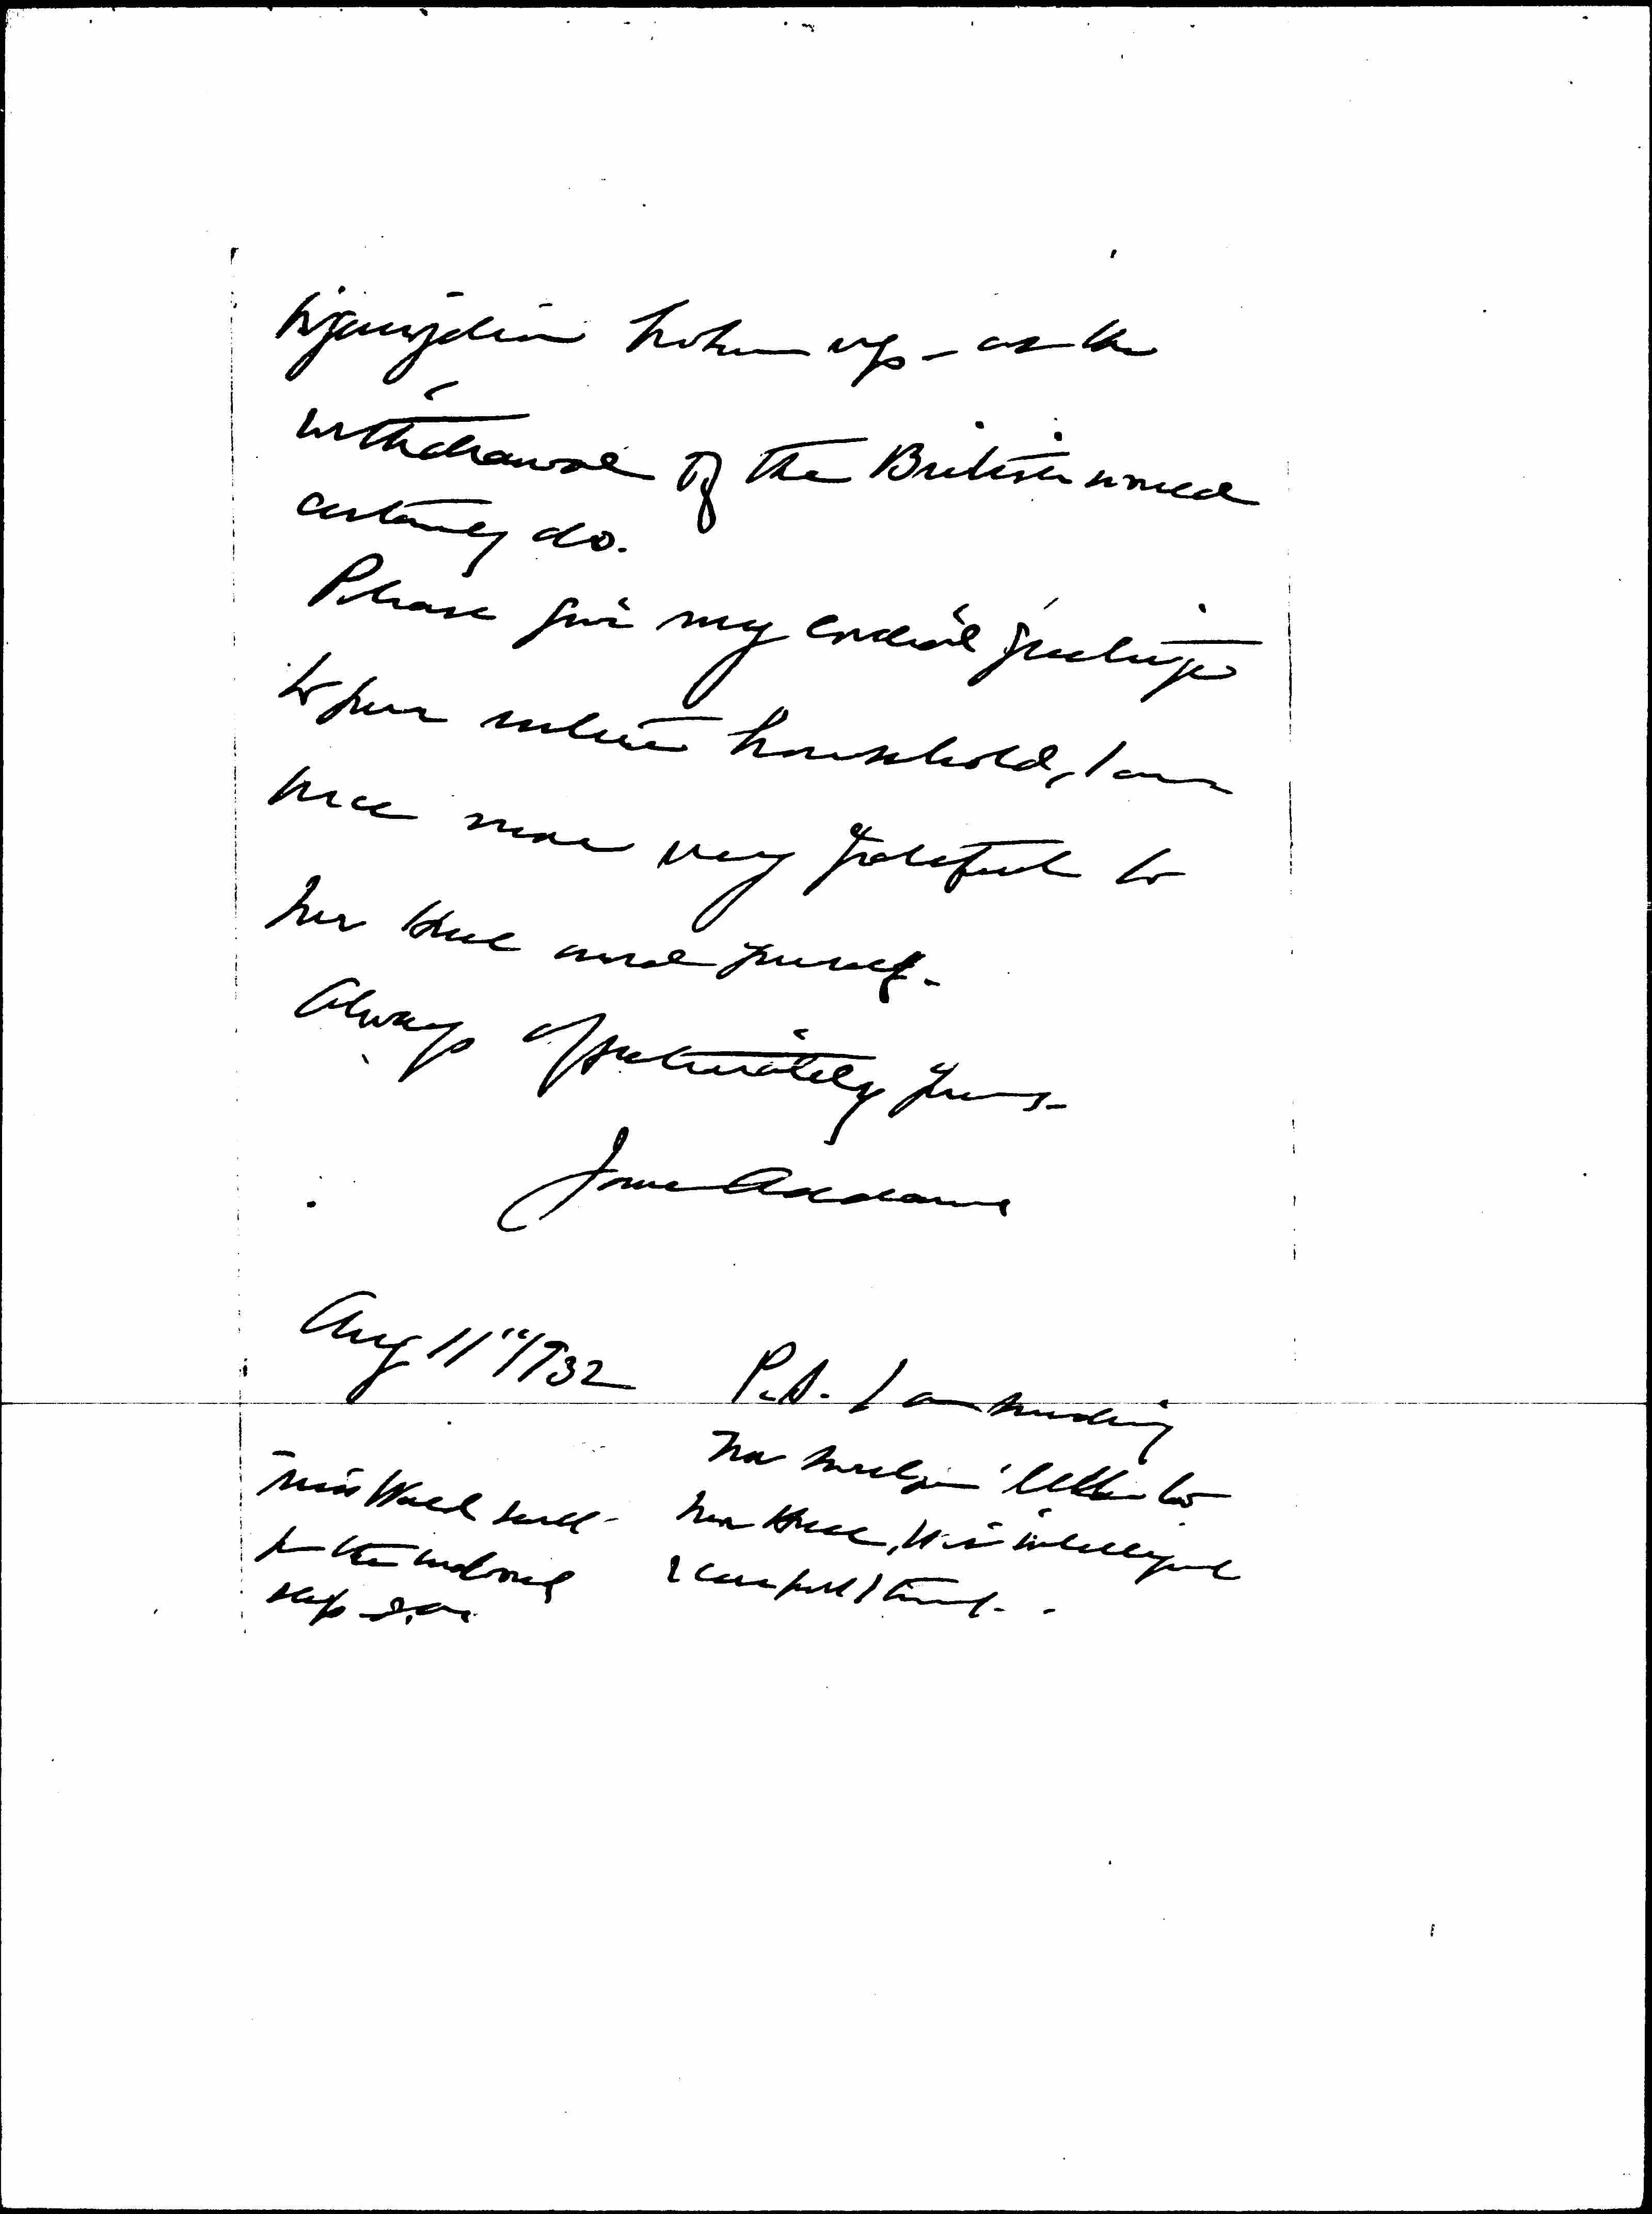 organization broken up - as the
withdrawal of the British would
certainly do.
Please give my cordial greetings
to your entire household, I am
once more very grateful to
Mrs Hull and yourself.
Always affectionately yours -
Jane Addams
Aug 11" 1932
P.S. I am sending
letter to
Mrs Hull, It is intelligent
& careful I think -
Miss Wald
for the